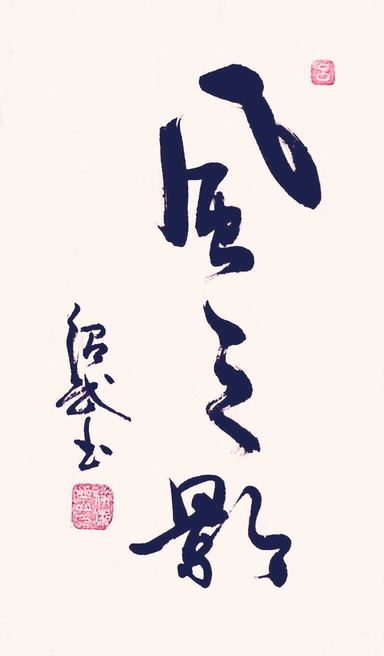 風之影
紹武書